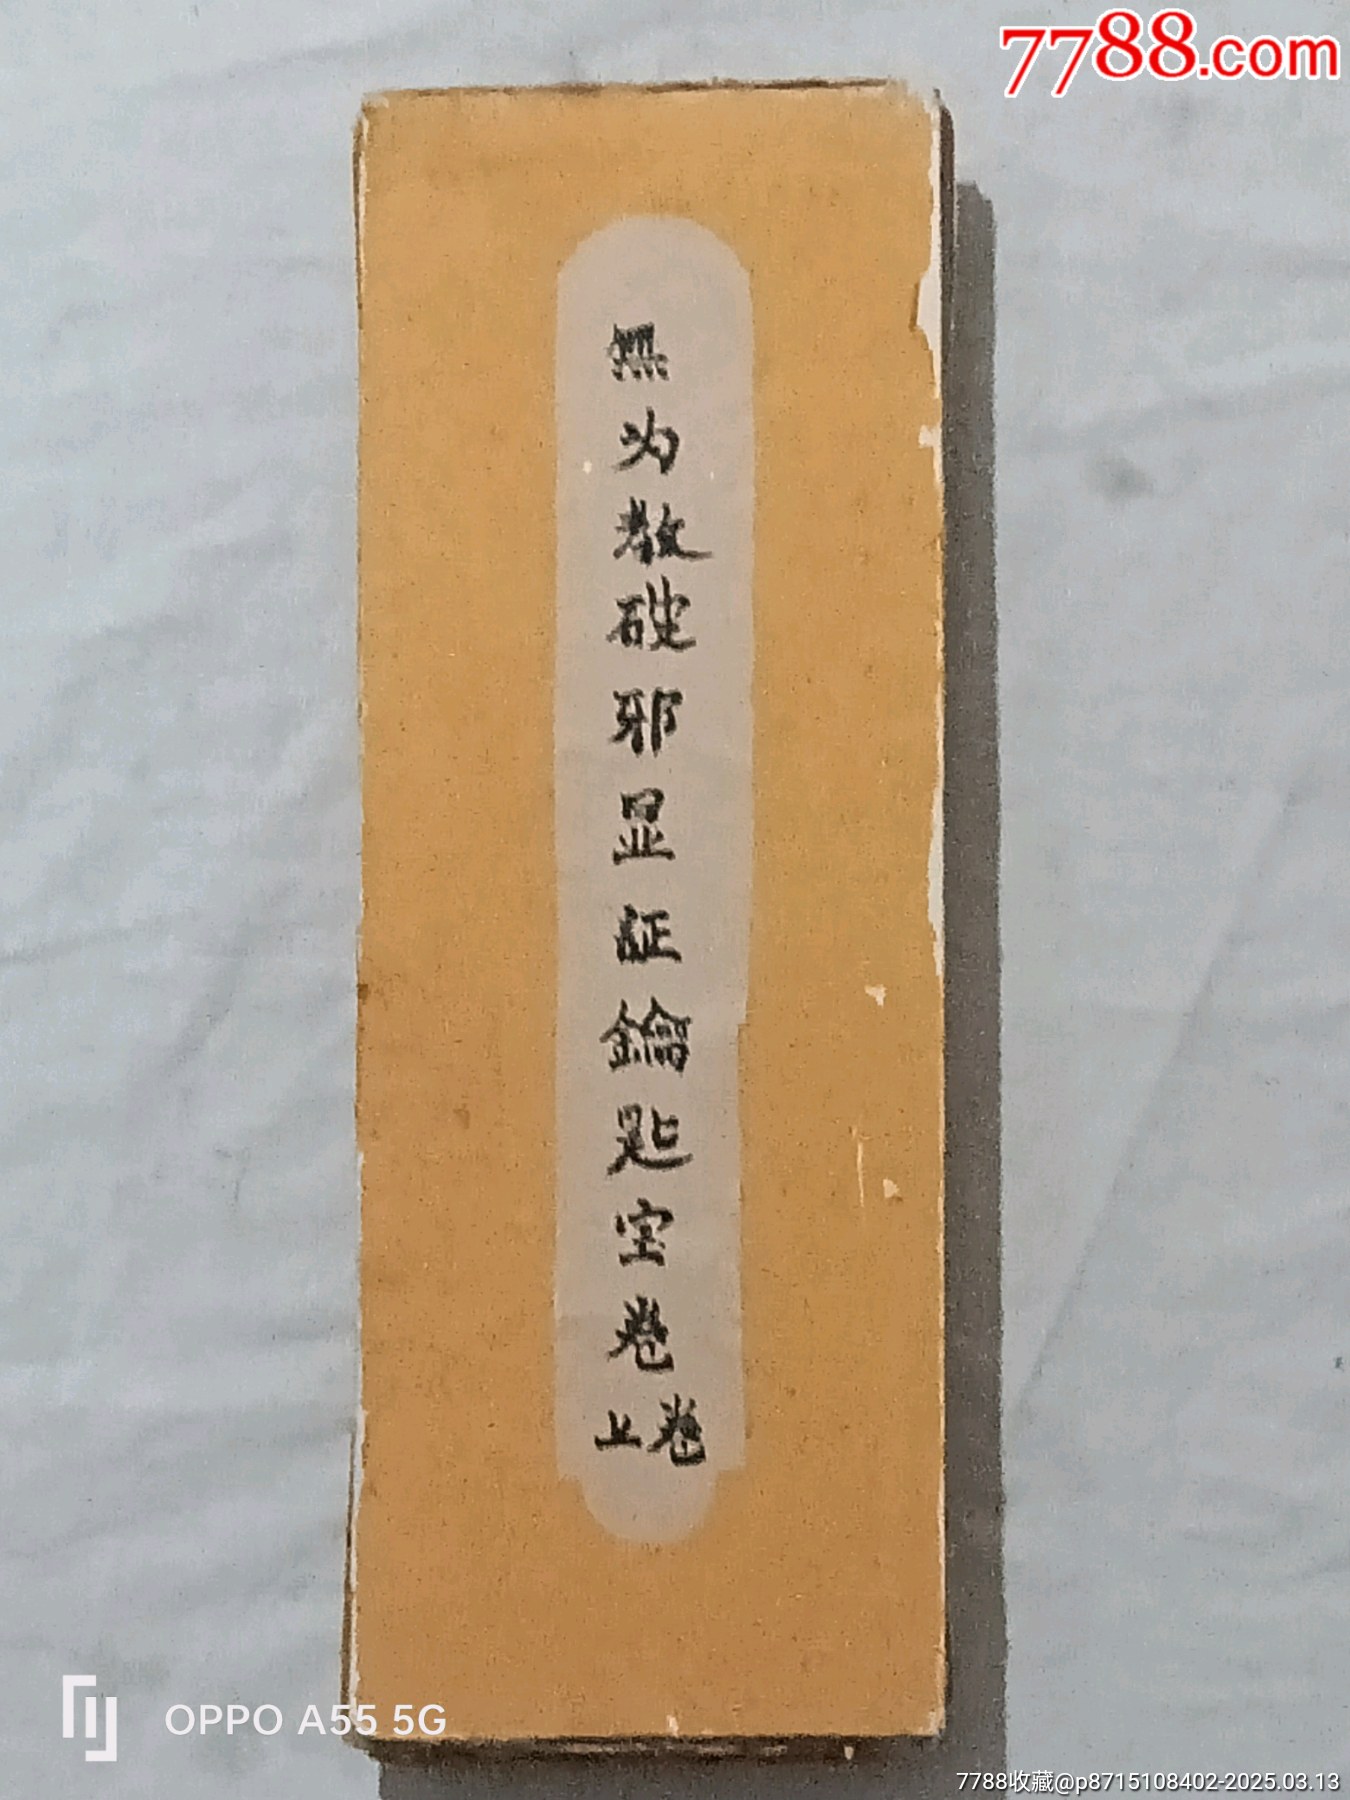 7788.com
無为教破邪显証鑰匙宝卷
上卷
OPPO A55 5G
7788收藏@p8715108402-2025.03.13